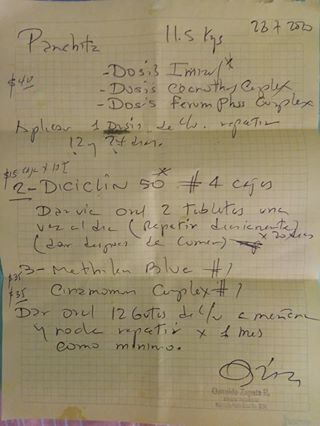 Panchita 11.5 Kgs 28 7 2020
$40 - Dosis Imizol *
- Dosis Crenothus Complex
- Dosis Ferrum Phos Complex
Aplicar 1 dosis de c/u. repetir
12 y 24 dias.
2 - DICICLIN 50 * # 4 cajas
Dar via oral 2 tabletas una
vez al dia (Repetir diariamente)
(dar despues de comer) x 20 dias
$35 3 - Methilen Blue # 1
$35 Cinamomun Complex # 1
Dar oral 12 Gotas de c/u a mañana
y noche repetir x 1 mes
como minimo.
Osvaldo Zapata R.